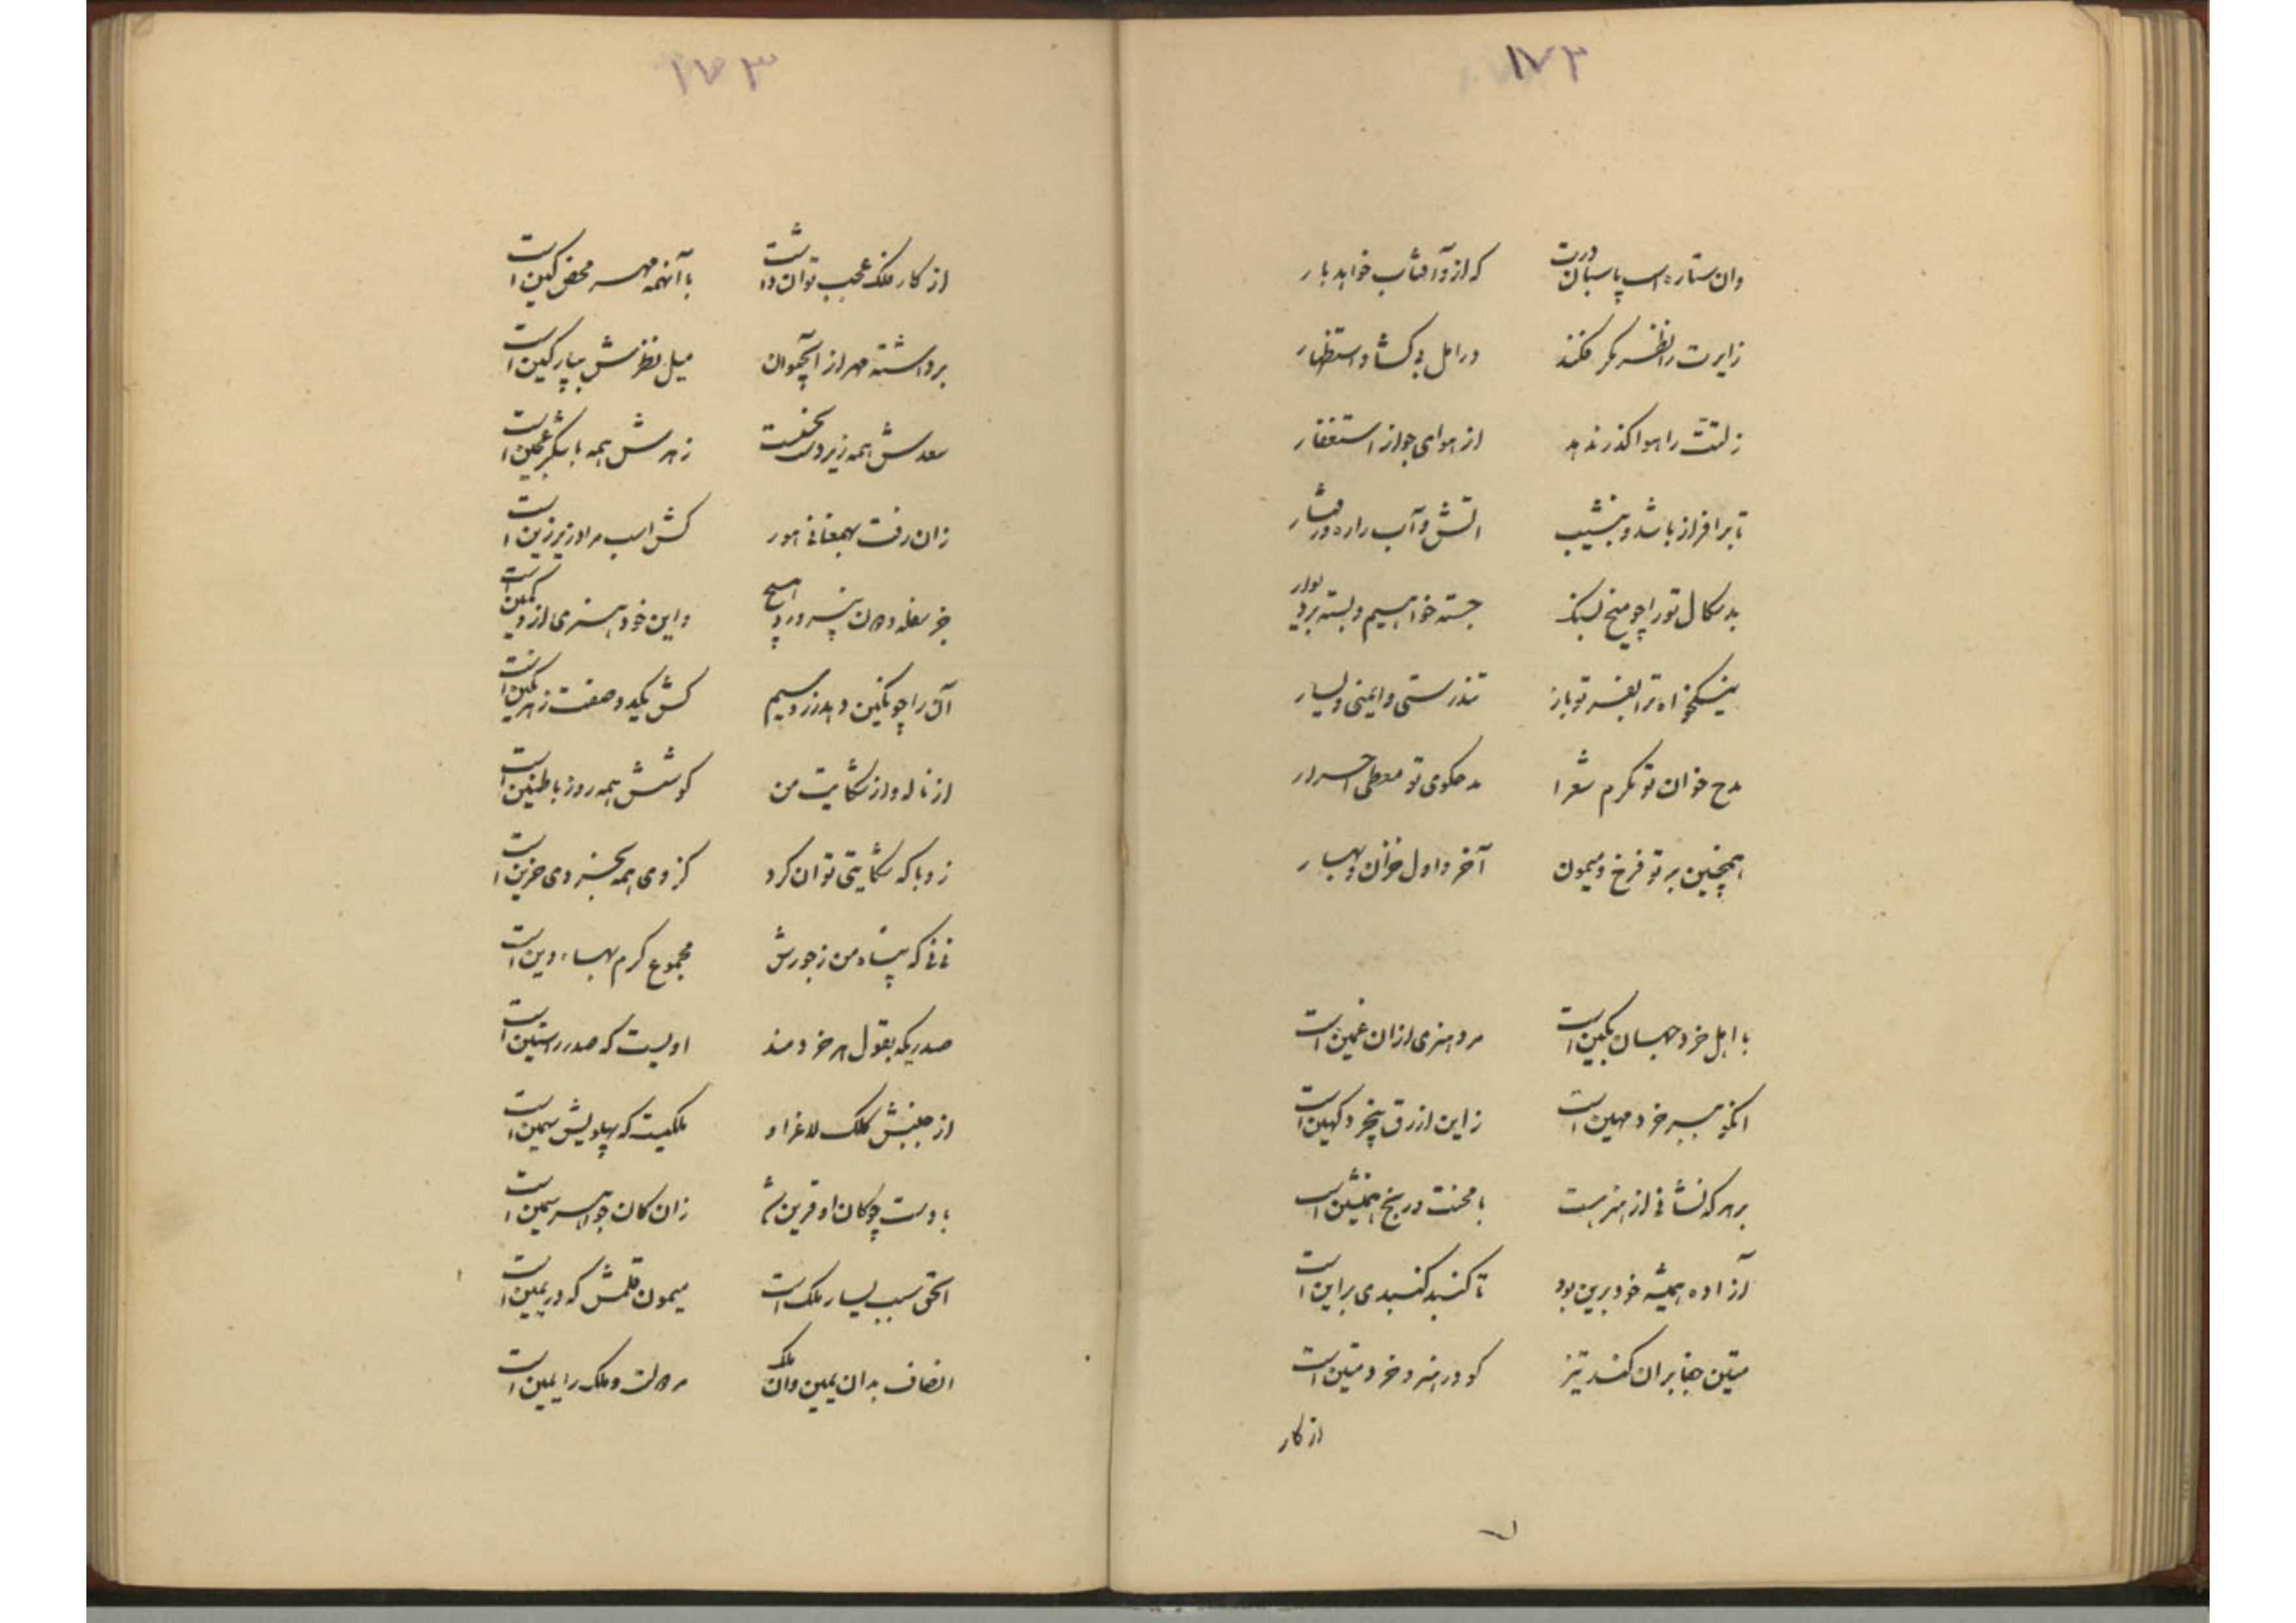 ۱۷۲
وان ستاره است پاسبان درت که ازو آفتاب خواهد بار
زایرت را نظر مگر فکند در امل بی گشاد استظهار
زلتت را هوا گذر ندهد از هوای جواز استغفار
تا برافراز باشد و بنشیب آتش و آب را ره و رفتار
بدسگال تو را چو میخ بسنگ جسته خواهیم و بسته بر دیوار
نیکخواه ترا بفر تو باز تندرستی و ایمنی و یسار
مدح خوان تو مکرم شعرا مدحگوی تو معطی احرار
همچنین بر تو فرخ و میمون آخر و اول خزان و بهار
با اهل خرد جهان بکین است مرد هنری ازان غمین است
آنکو ببر خرد مهین است زاین ازرق بیخرد کهین است
بر هر که نشانی از هنر هست با محنت و رنج همنشین است
آزاده همیشه خود برین بود تا گنبد گنبدی براین است
میتین جفا بران کند تیز کو در هنر و خرد متین است
از کار
۱۷۳
از کار فلک عجب توان داشت با آنهمه مهر محض کین است
برداشته مهر از آبحیوان میل نظرش بپارگین است
سعدش همه زیردست نحس است زهرش همه با شکر عجین است
زان رفت بهمعنانی هور کش اسب مراد زیر زین است
جز سفله و دون نپرورد هیچ واین خود هنری ازو کمین است
آن را چو نگین دهد زر و سیم کش یکدو صفت ز هر نگین است
از ناله و از شکایت من گوشش همه روز با طنین است
زو با که شکایتی توان کرد کز وی همه بخردی حزین است
نی نی که پناه من ز جورش مجموع کرم بهاء دین است
صدریکه بقول هر خردمند اویست که صدر راستین است
از جنبش کلک لاغر او ملکیست که پهلویش سمین است
با دست چو کان او قرین شد زان کان جواهر سمین است
الحق سبب یسار ملک است میمون قلمش که در یمین است
انصاف بدان یمین و آن کلک مر دولت و ملک را یمین است